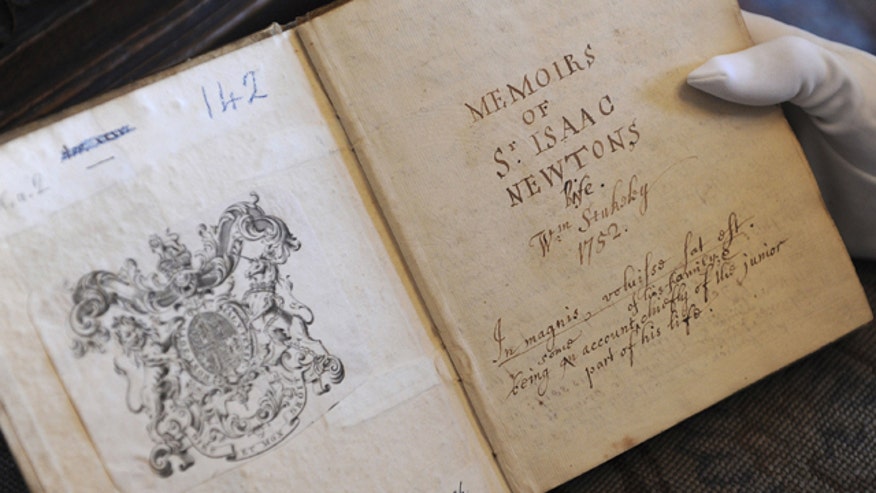 142
ET MON
MEMOIRS
OF
Sr. ISAAC
NEWTONS
life.
Wm Stukely
1752.
In magnis, voluisse sat est.
some of his family &
being an account, chiefly of the junior
part of his life.